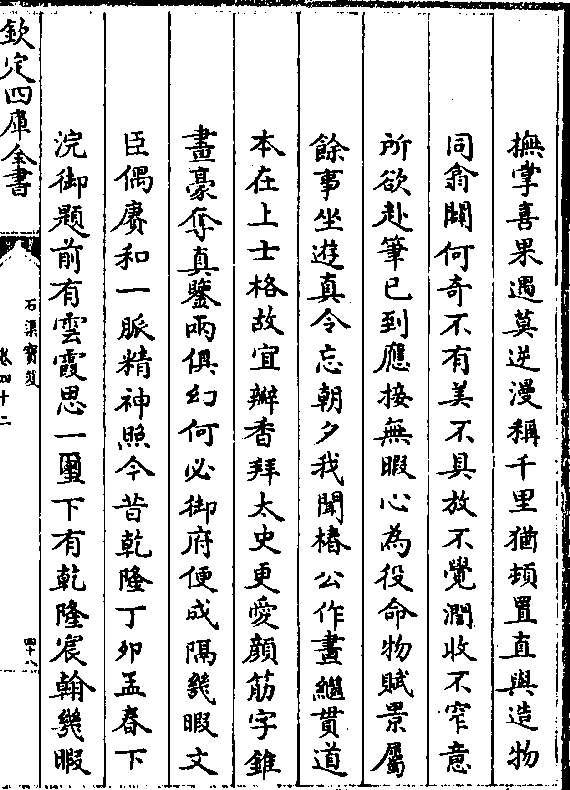 撫掌喜果遇莫逆漫稱千里猶頓置直與造物
同翕闢何奇不有美不具放不覺濶收不窄意
所欲赴筆已到應接無暇心為役命物賦景屬
餘事坐遊真令忘朝夕我聞椿公作畫繼貫道
本在上士格故宜瓣香拜太史更愛顔筋字錐
畫豪奪真鑒兩俱幻何必御府便成隔幾暇文
臣偶賡和一脈精神照今昔乾隆丁卯孟春下
浣御題前有雲霞思一璽下有乾隆宸翰幾暇
欽定四庫全書
石渠寶笈
卷四十二
四十八